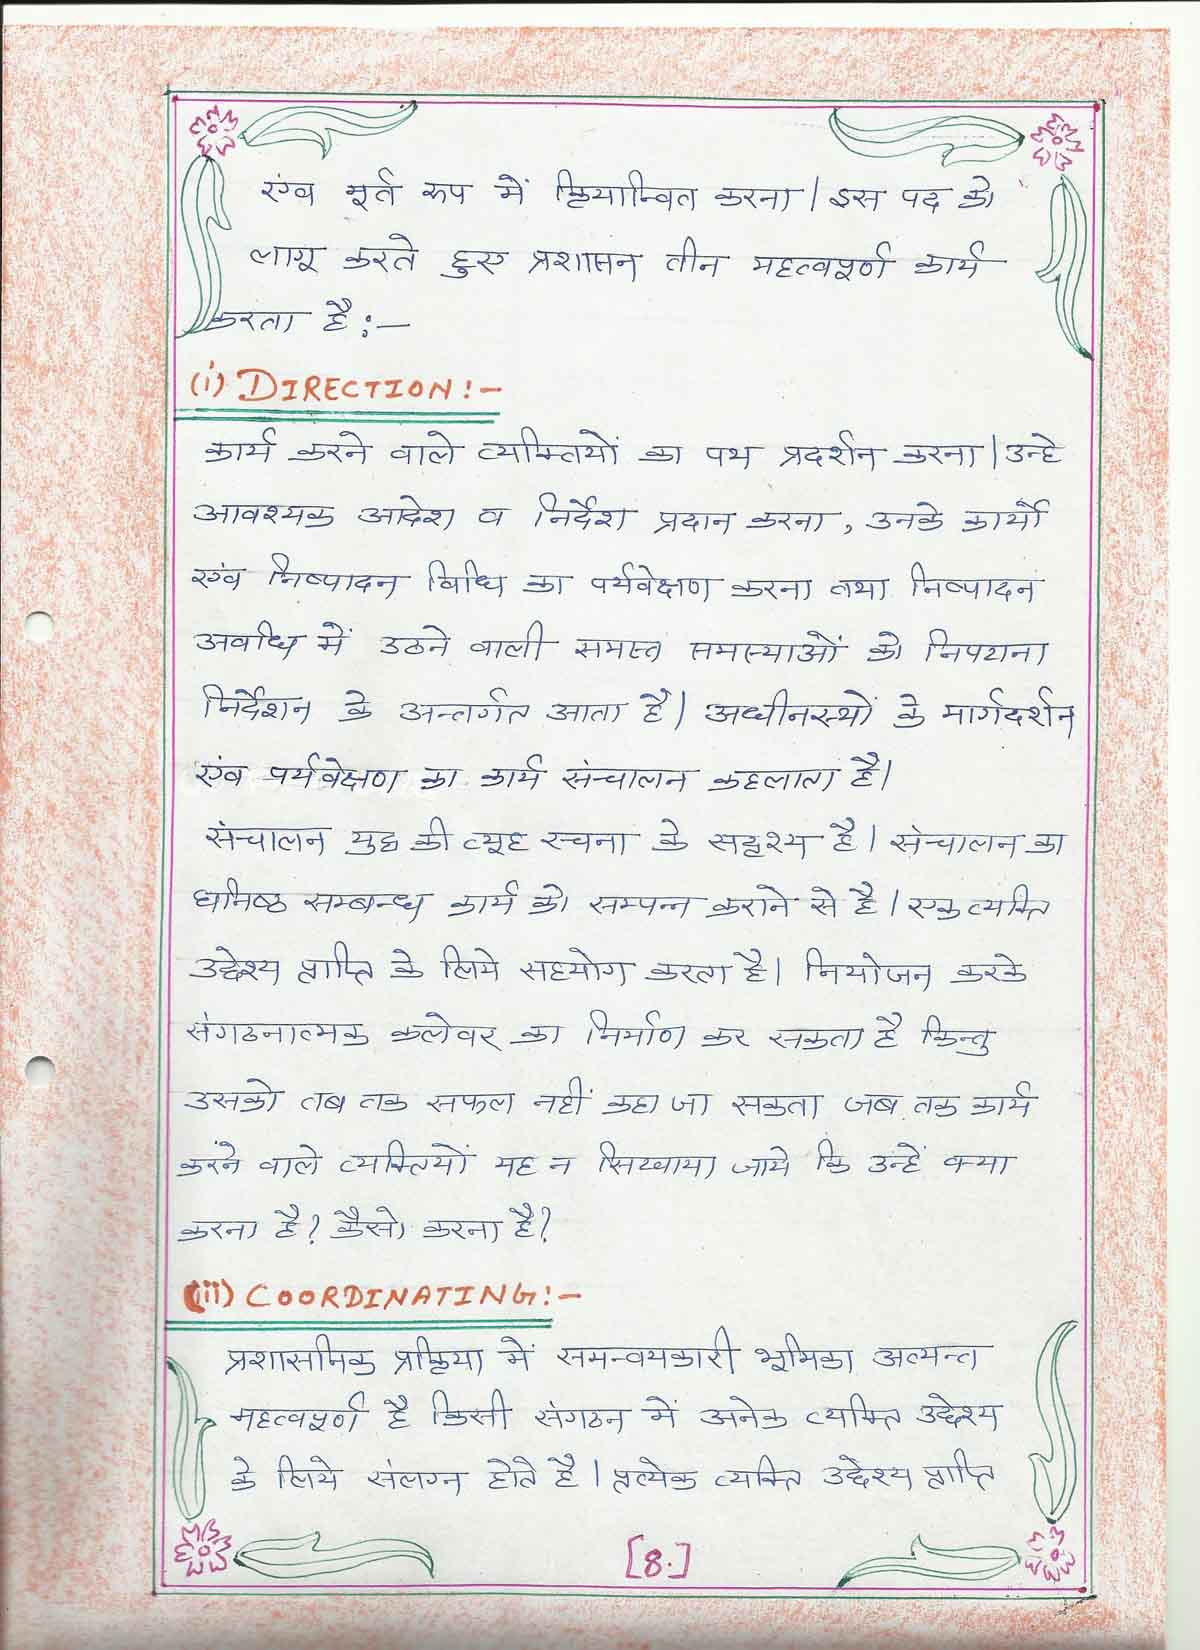 एंव मूर्त रूप में क्रियान्वित करना। इस पद को
लागू करते हुए प्रशासन तीन महत्वपूर्ण कार्य
करता है:—
(i) DIRECTION:-
कार्य करने वाले व्यक्तियों का पथ प्रदर्शन करना। उन्हे
आवश्यक आदेश व निर्देश प्रदान करना, उनके कार्यो
एंव निष्पादन विधि का पर्यवेक्षण करना तथा निष्पादन
अवधि में उठने वाली समस्त समस्याओं को निपटाना
निर्देशन के अन्तर्गत आता है। अधीनस्थों के मार्गदर्शन
एंव पर्यवेक्षण का कार्य संन्चालन कहलाता है।
संन्चालन युद्ध की व्यूह रचना के सद्दृश्य है। संन्चालन का
घनिष्ठ सम्बन्ध कार्य को सम्पन्न कराने से है। एक व्यक्ति
उद्देश्य प्राप्ति के लिये सहयोग करता है। नियोजन करके
संगठनात्मक कलेवर का निर्माण कर सकता है किन्तु
उसको तब तक सफल नहीं कहा जा सकता जब तक कार्य
करने वाले व्यक्तियों यह न सिखाया जाये कि उन्हें क्या
करना है? कैसे करना है?
(ii) COORDINATING:-
प्रशासनिक प्रक्रिया में समन्वयकारी भूमिका अत्यन्त
महत्वपूर्ण है किसी संगठन में अनेक व्यक्ति उद्देश्य
के लिये संलग्न होते है। प्रत्येक व्यक्ति उद्देश्य प्राप्ति
[8.]